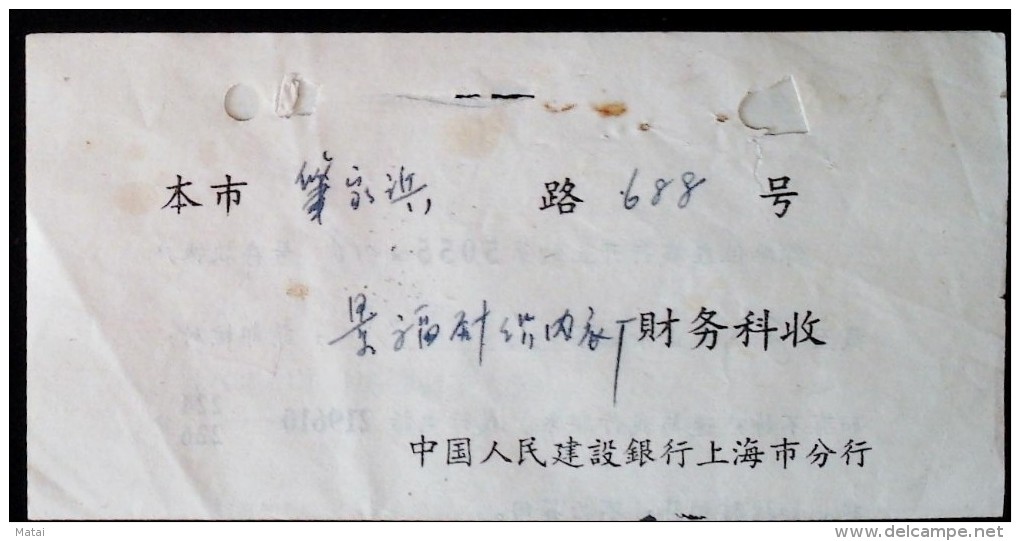 本市 肇家浜 路 688 号
景福针织内衣厂財务科收
中国人民建設銀行上海市分行
Matai
delcampe.net